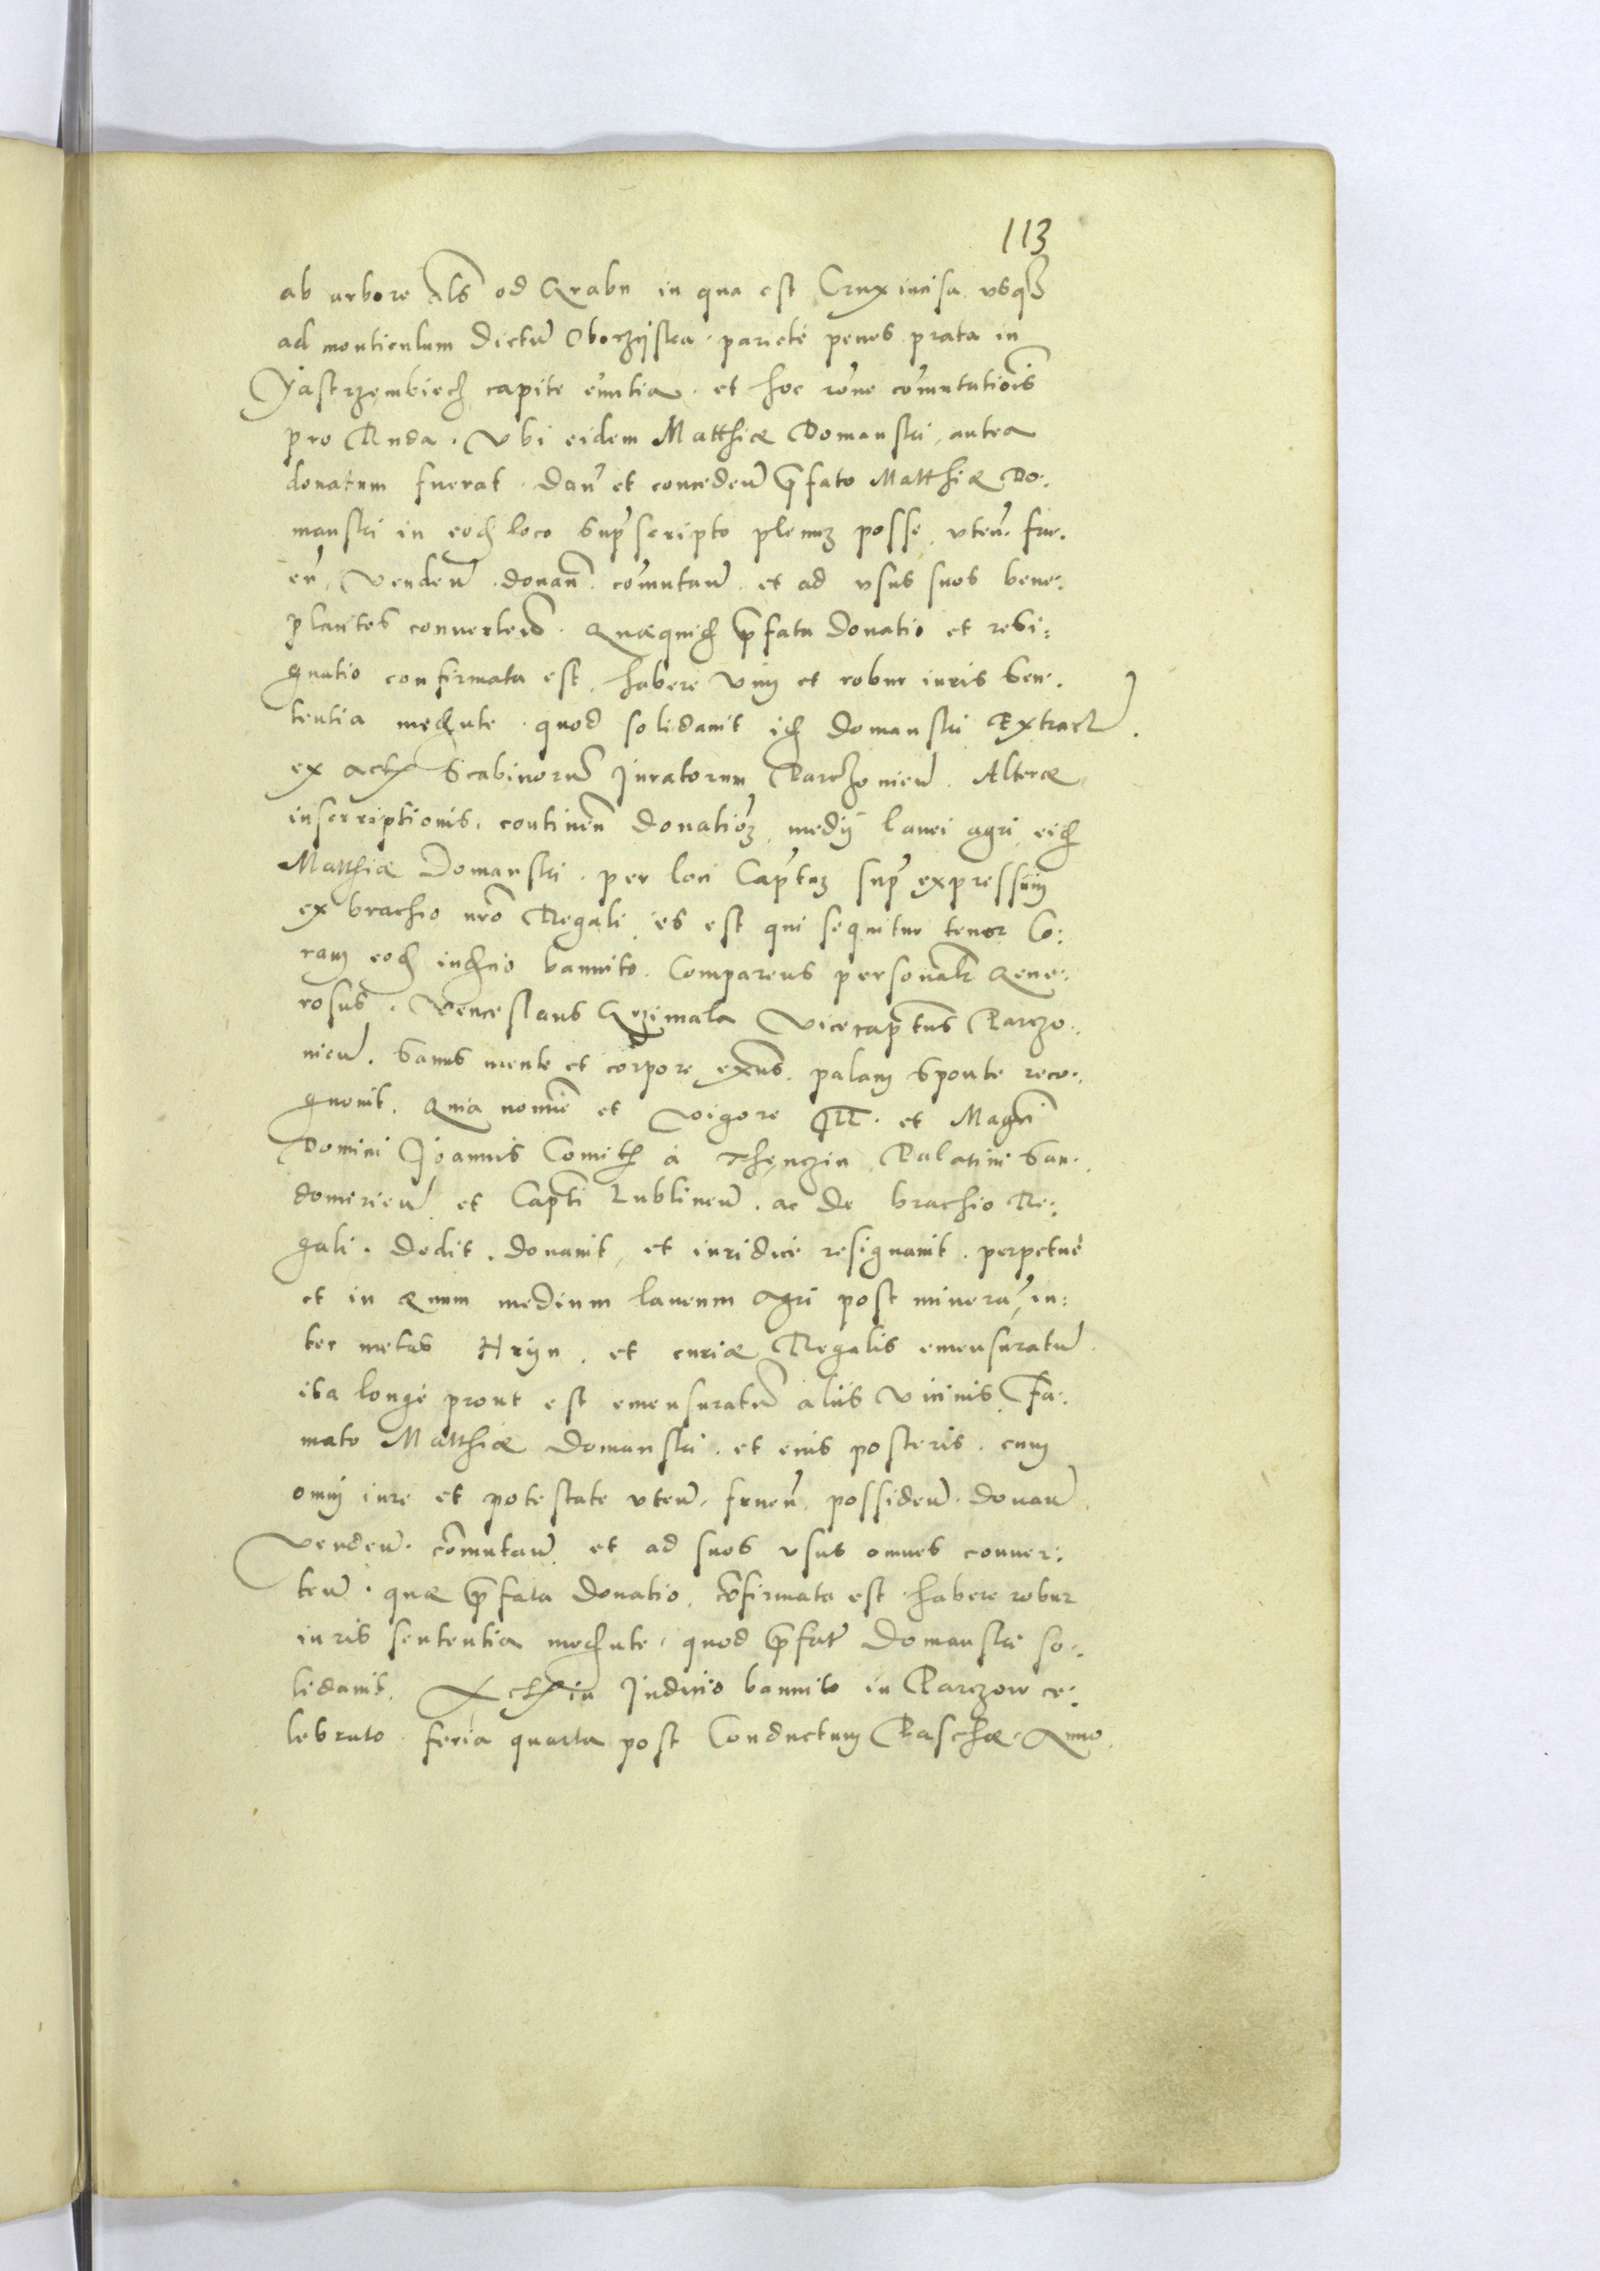 113
ab arbore als od Grabu in qua est Crux incisa usq3
ad monticulum dictū Oborzyska. parietē penes prata in
Jastrzembiech capite eūntia. et hoc rōne cōmutatiōis
pro Ruda. Ubi eidem Matthiæ Domanski, antea
donatum fuerat. Dañ et concedeñ p̄fato Matthiæ Do:
manski in eod loco Sup̄scripto plenuȝ posse, uteñ. fru:
eñ, Vendeñ. donañ. cōmutañ. et ad usus suos bene:
placitos convertend. Quæquid p̄fata donatio et resi:
gnatio confirmata est, habere Vim et robur iuris Sen:
tentia mediante. quod solidavit id Domanski Extract
ex actis Scabinorū Juratorum Parczovieñ. Alteræ
inscriptionis, continēn donatiōȝ, medij lanei agri, eid
Matthiæ Domanski. per loci Cap̄tuȝ sup̄ expressum
ex brachio nrō Regali, is est qui sequitur tenor Co:
ram eod iudicio bannito. Comparens personalr Gene:
rosus. Venceslaus Grzimala Vicecap̄tus Parczo:
vieñ. Sanus mente et corpore exñs. palam sponte reco:
gnovit. Quia nomine et vigore M. et Magci
Domini Joannis Comitis à Thenczin, Palatini San:
domirieñ et Capti Lublineñ. ac de brachio Re:
gali. dedit. donavit, et iuridice resignavit. perpetuè
et in ævum medium laneum agri post minerā, in:
ter metas Hryn. et curiæ Regalis emensuratū.
ita longè prout est emensuratū alijs Vicinis, Fa:
mato Matthiæ Domanski. et eius posteris. cum
omni iure et potestate uteñ. frueñ. possideñ. donañ
Vendeñ. cōmutañ et ad suos usus omnes conver:
teñ. quæ p̄fata donatio, cōfirmata est habere robur
iuris sententia mediante, quod p̄fat Domanski so:
lidavit. Actū in Judicio bannito in Parczow ce:
lebrato feria quarta post Conductum Paschæ. Anno